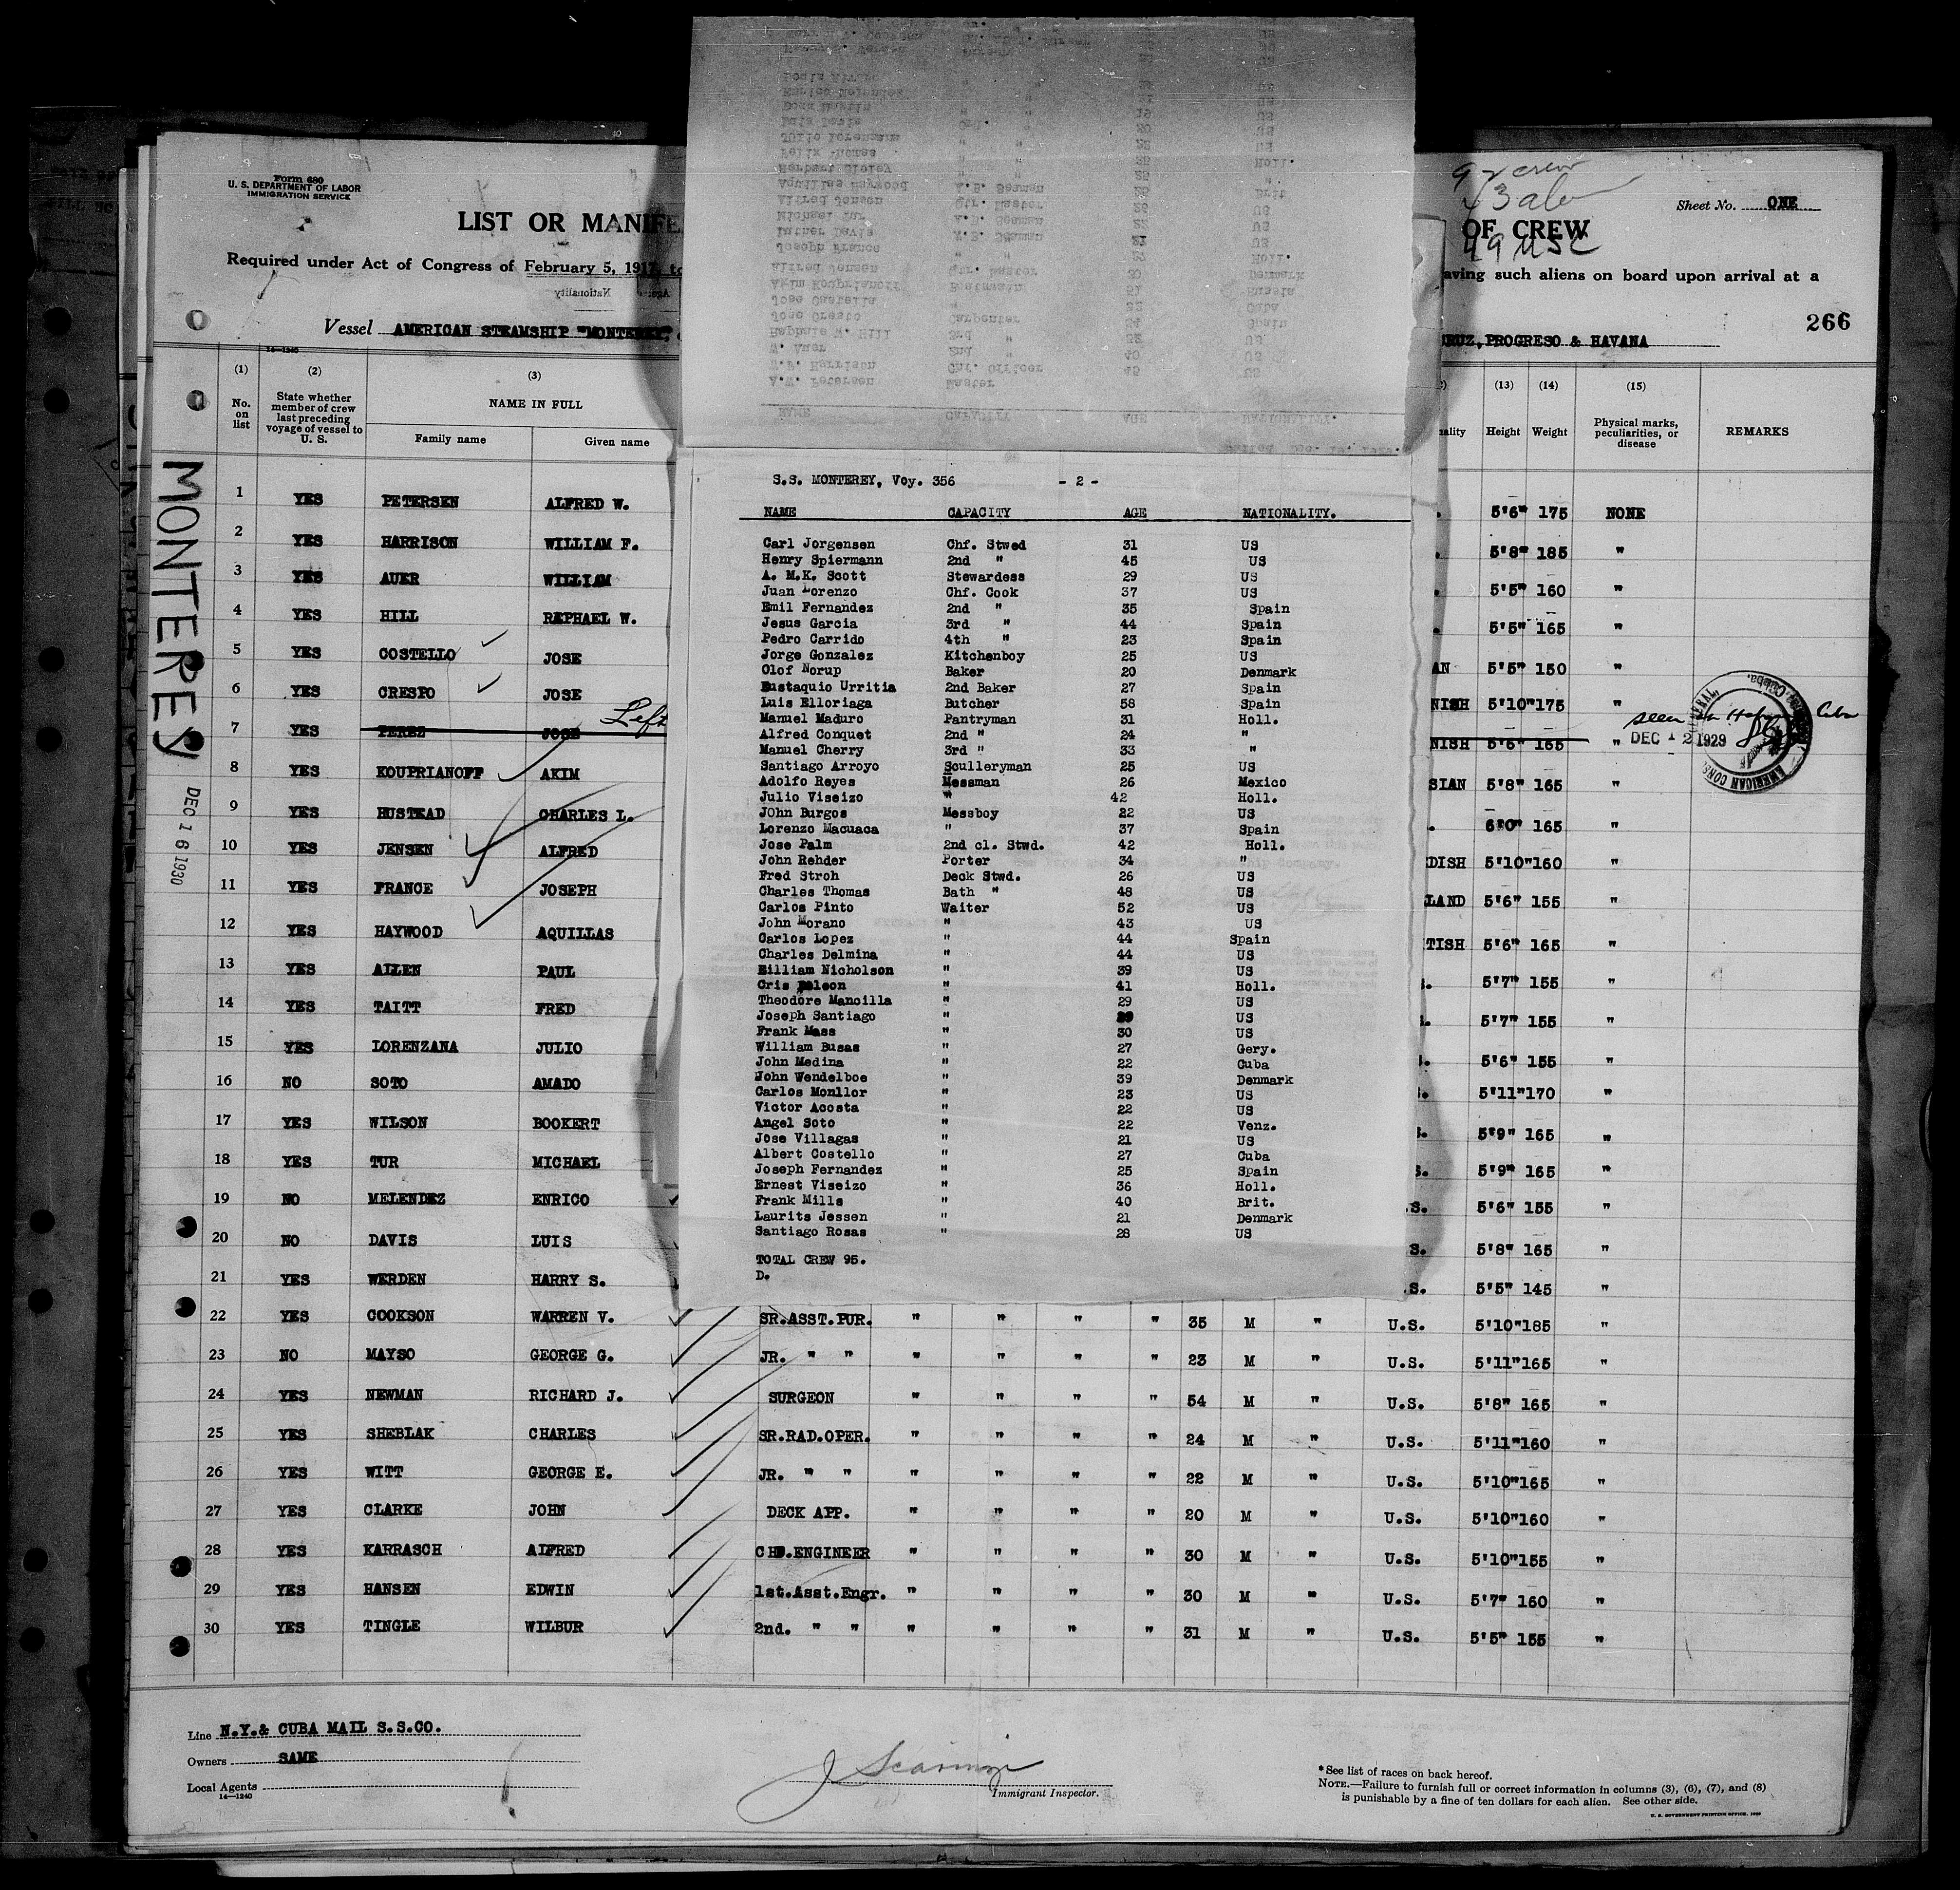 Form 680
U. S. DEPARTMENT OF LABOR
IMMIGRATION SERVICE
Sheet No. ONE
LIST OR MANIFE
OF CREW
Required under Act of Congress of February 5, 191
aving such aliens on board upon arrival at a
266
Vessel AMERICAN STEAMSHIP "MONTEREY,"
CRUZ, PROGRESO & HAVANA
14—1240
(1) (2) (3) (13) (14) (15)
No. on list State whether member of crew last preceding voyage of vessel to U. S. NAME IN FULL Family name Given name Height Weight Physical marks, peculiarities, or disease REMARKS
MONTEREY
DEC 16 1930
1 YES PETERSEN ALFRED W. 5'6" 175 NONE
2 YES HARRISON WILLIAM F. 5'8" 185 "
3 YES AUER WILLIAM 5'5" 160 "
4 YES HILL RAPHAEL W. 5'5" 165 "
5 YES COSTELLO JOSE AN 5'5" 150 "
6 YES CRESPO JOSE NISH 5'10" 175 "
7 YES PEREZ JOSE Left NISH 5'6" 165 "
seen in Cuba
DEC 12 1929
8 YES KOUPRIANOFF AKIM SIAN 5'8" 165 "
9 YES HUSTEAD CHARLES L. 6'0" 165 "
10 YES JENSEN ALFRED DISH 5'10" 160 "
11 YES FRANCE JOSEPH LAND 5'6" 155 "
12 YES HAYWOOD AQUILLAS TISH 5'6" 165 "
13 YES ALLEN PAUL 5'7" 155 "
14 YES TAITT FRED 5'7" 155 "
15 YES LORENZANA JULIO 5'6" 155 "
16 NO SOTO AMADO 5'11" 170 "
17 YES WILSON BOOKERT 5'9" 165 "
18 YES TUR MICHAEL S. 5'9" 165 "
19 NO MELENDEZ ENRICO S. 5'6" 155 "
20 NO DAVIS LUIS S. 5'8" 165 "
21 YES WERDEN HARRY S. S. 5'5" 145 "
22 YES COOKSON WARREN V. SR.ASST.PUR. " " " " 35 M " U.S. 5'10" 185 "
23 NO MAYSO GEORGE G. JR. " " " " " " 23 M " U.S. 5'11" 165 "
24 YES NEWMAN RICHARD J. SURGEON " " " " 54 M " U.S. 5'8" 165 "
25 YES SHEBLAK CHARLES SR.RAD.OPER. " " " " 24 M " U.S. 5'11" 160 "
26 YES WITT GEORGE E. JR. " " " " " " 22 M " U.S. 5'10" 165 "
27 YES CLARKE JOHN DECK APP. " " " " 20 M " U.S. 5'10" 160 "
28 YES KARRASCH ALFRED CHF.ENGINEER " " " " 30 M " U.S. 5'10" 155 "
29 YES HANSEN EDWIN 1st.Asst.Engr. " " " " 30 M " U.S. 5'7" 160 "
30 YES TINGLE WILBUR 2nd. " " " " " " 31 M " U.S. 5'5" 155 "
S.S. MONTEREY, Voy. 356 - 2 -
NAME CAPACITY AGE NATIONALITY.
Carl Jorgensen Chf. Stwed 31 US
Henry Spiermann 2nd " 45 US
A. M.K. Scott Stewardess 29 US
Juan Lorenzo Chf. Cook 37 US
Emil Fernandez 2nd " 35 Spain
Jesus Garcia 3rd " 44 Spain
Pedro Carrido 4th " 23 Spain
Jorge Gonzalez Kitchenboy 25 US
Olof Norup Baker 20 Denmark
Eustaquio Urritia 2nd Baker 27 Spain
Luis Elloriaga Butcher 58 Spain
Manuel Maduro Pantryman 31 Holl.
Alfred Conquet 2nd " 24 "
Manuel Cherry 3rd " 33 "
Santiago Arroyo Sculleryman 25 US
Adolfo Reyes Messman 26 Mexico
Julio Viseizo " 42 Holl.
John Burgos Messboy 22 US
Lorenzo Macuaca " 37 Spain
Jose Palm 2nd cl. Stwd. 42 Holl.
John Rehder Porter 34 "
Fred Stroh Deck Stwd. 26 US
Charles Thomas Bath " 48 US
Carlos Pinto Waiter 52 US
John Morano " 43 US
Carlos Lopez " 44 Spain
Charles Delmina " 44 US
Eilliam Nicholson " 39 US
Cris " 41 Holl.
Theodore Mancilla " 29 US
Joseph Santiago " US
Frank Mass " 30 US
William Busas " 27 Gery.
John Medina " 22 Cuba
John Wendelboe " 39 Denmark
Carlos Monllor " 23 US
Victor Acosta " 22 US
Angel Soto " 22 Venz.
Jose Villagas " 21 US
Albert Costello " 27 Cuba
Joseph Fernandez " 25 Spain
Ernest Viseizo " 36 Holl.
Frank Mills " 40 Brit.
Laurits Jessen " 21 Denmark
Santiago Rosas " 28 US
TOTAL CREW 95.
D.
Line N.Y.& CUBA MAIL S.S.CO.
Owners SAME
Local Agents
14—1240
Immigrant Inspector.
*See list of races on back hereof.
NOTE.—Failure to furnish full or correct information in columns (3), (6), (7), and (8)
is punishable by a fine of ten dollars for each alien. See other side.
U. S. GOVERNMENT PRINTING OFFICE